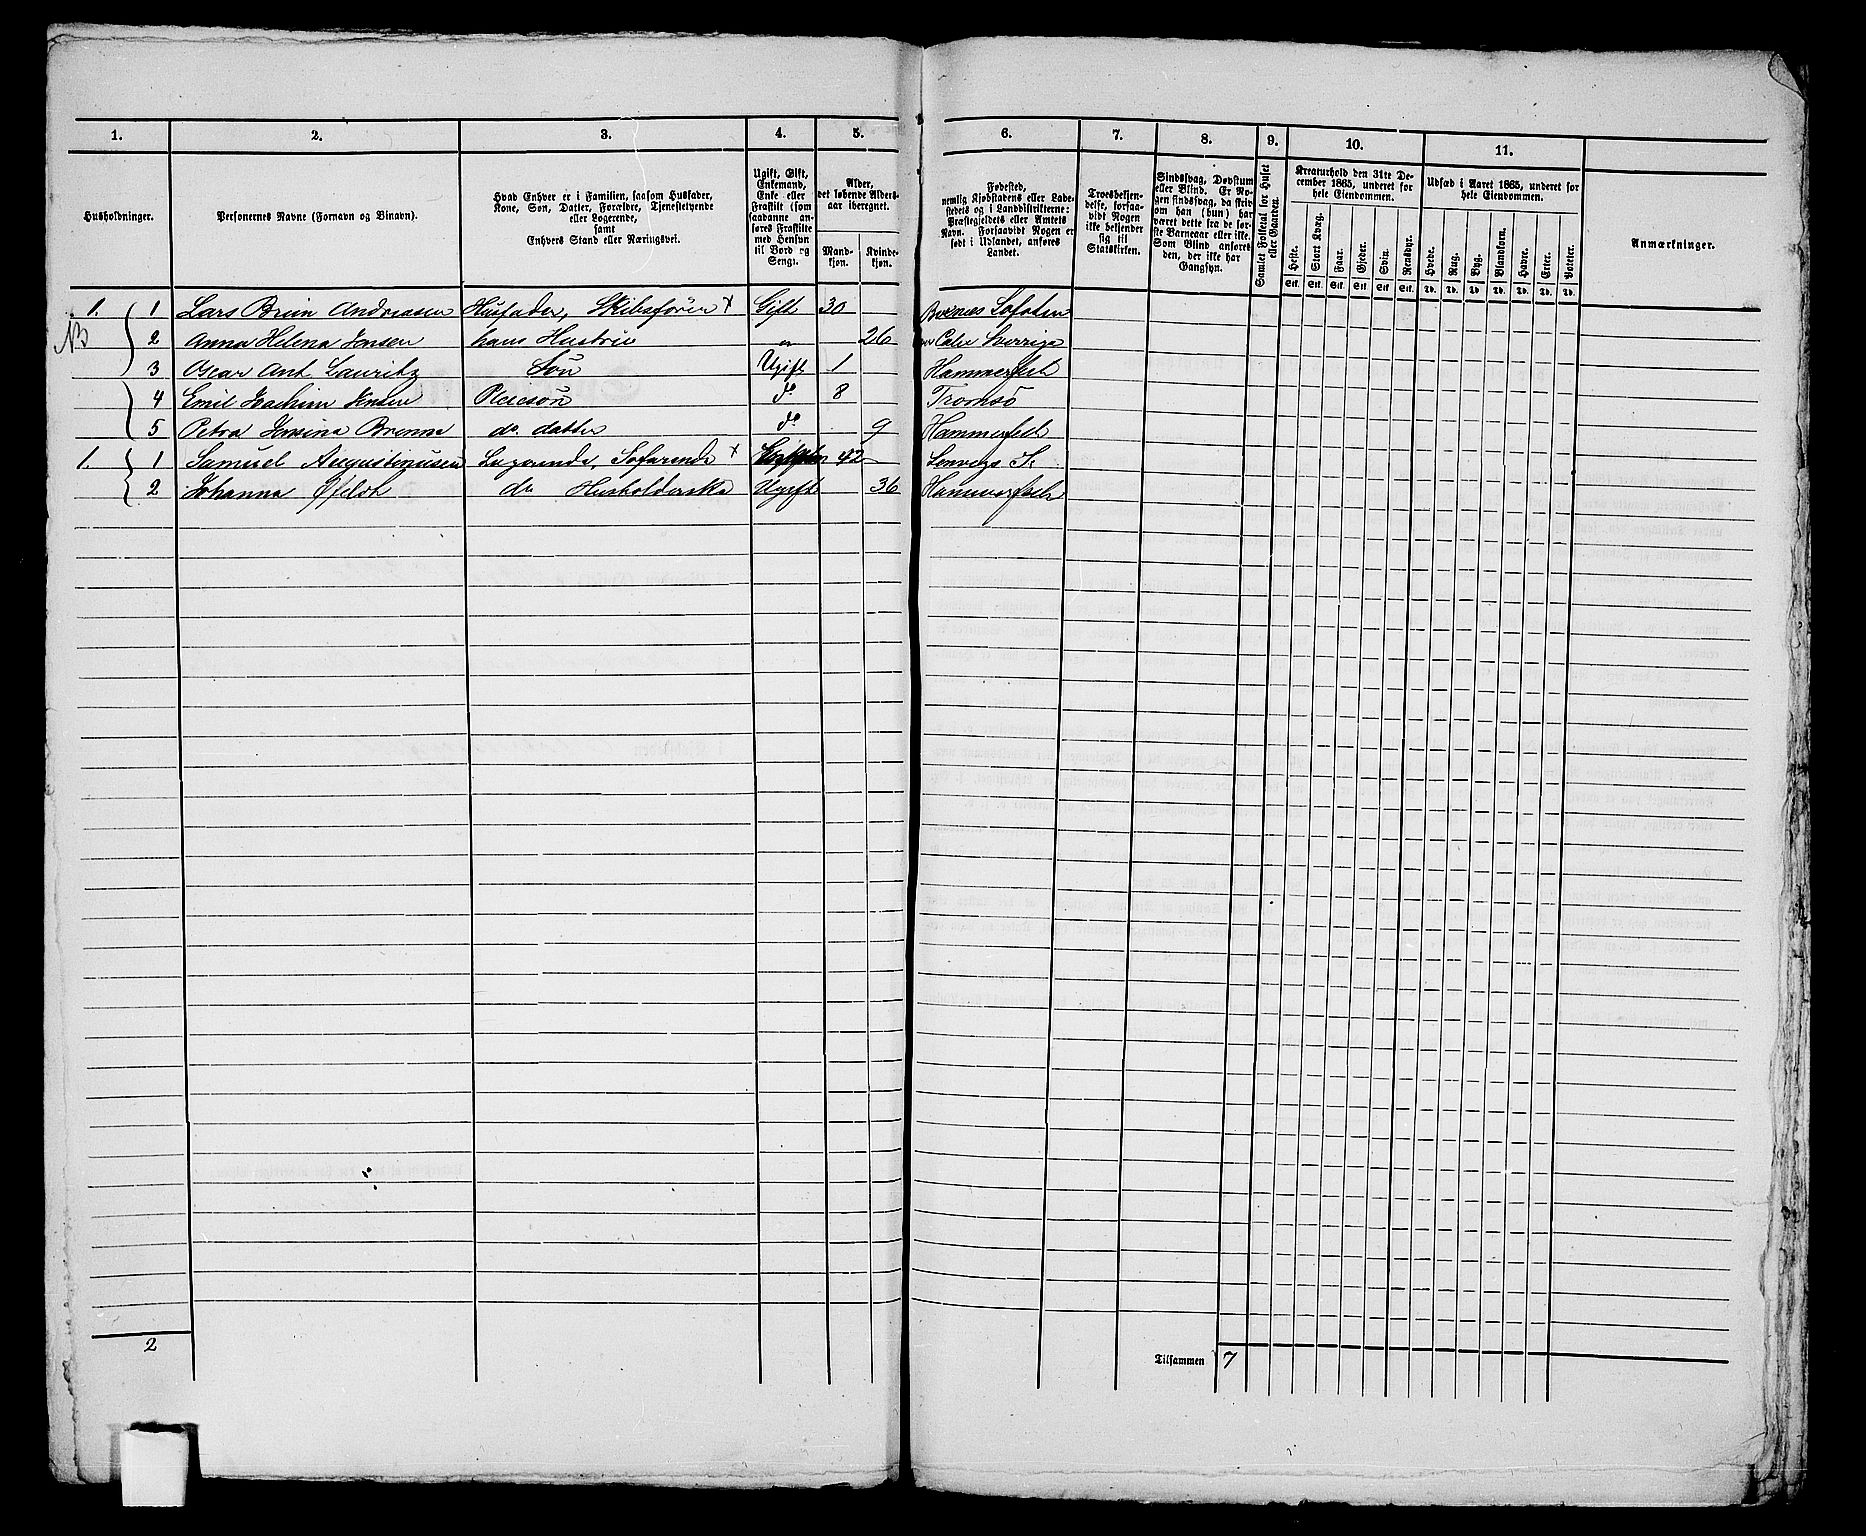 1. 2. 3. 4. 5. 6. 7. 8. 9. 10. 11.
Husholdninger.
Personernes Navne (Fornavn og Binavn).
Hvad Enhver er i Familien, saasom Husfader,
Kone, Søn, Datter, Forældre, Tjenestetyende
eller Logerende,
samt
Enhvers Stand eller Næringsvei.
Ugift, Gift,
Enkemand,
Enke eller
Fraskilt (som
saadanne an-
føres Fraskilte
med Hensyn
til Bord og
Seng).
Alder,
det løbende Alders-
aar iberegnet.
Mand-
kjøn.
Kvinde-
kjøn.
Fødested,
nemlig Kjøbstadens eller Lade-
stedets og i Landdistrikterne:
Præstegjeldets eller Amtets
Navn. Forsaavidt Nogen er
født i Udlandet, anføres
Landet.
Troesbekjen-
delse, forsaa-
vidt Nogen
ikke bekjender
sig til
Statskirken.
Sindssvag, Døvstum
eller Blind. Er No-
gen sindssvag, da skriv
om han (hun) har
været dette fra de før-
ste Barneaar eller ikke.
Som Blind anføres
den, der ikke har
Gangsyn.
Samlet Folketal for Huset
eller Gaarden.
Kreaturhold den 31te De-
cember 1865, underet for
hele Eiendommen.
Heste. Stort Kvæg. Faar. Gjeder. Svin. Rensdyr.
Stk. Stk. Stk. Stk. Stk. Stk.
Udsæd i Aaret 1865, underet for
hele Eiendommen.
Hvede. Rug. Byg. Blandkorn. Havre. Erter. Poteter.
Td. Td. Td. Td. Td. Td. Td.
Anmærkninger.
1. 1 Lars Bruun Andreassen Husfader, Skibsfører x Gift 30 Lofoten
NB 2 Anna Helena Jensen hans Hustrue " 26 Sverrige
3 Oscar Ant Lauritz Søn Ugift 1 Hammerfest
4 Emil Joachim Jensen Pleiesøn do 8 Tromsø
5 Petra Jensina do datter do 9 Hammerfest
1. 1 Samuel Augustinusen Logerende, Søfarende x 42
2 Johanna do Husholderske Ugift 36 Hammerfest
2
Tilsammen 7